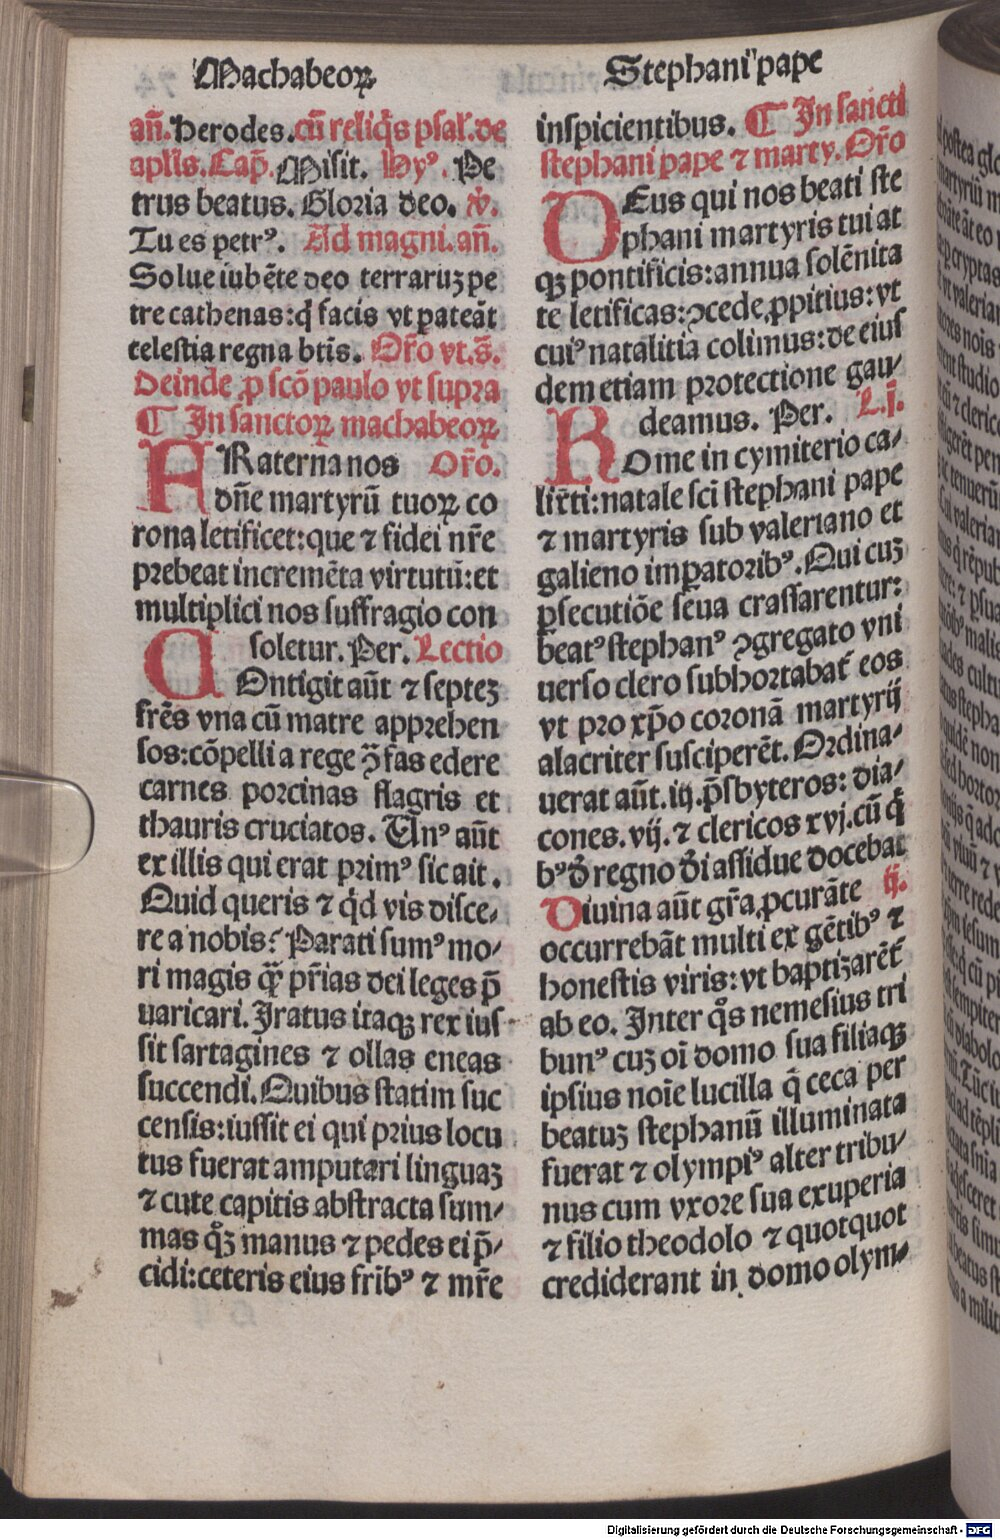 Machabeoꝝ
Stephani pape
añ. Herodes. cū reliq̄s psal. de
aplīs. Cap̄. Misit. Hyꝰ. Pe
trus beatus. Gloria deo. v̄.
Tu es petrꝰ. Ad magni. añ.
Solue iubēte deo terrarūꝫ pe
tre cathenas: q̇ facis vt pateāt
celestia regna btīs. Or̄o vt. s̄.
Deinde ꝓ scō paulo vt supra
¶ In sanctoꝝ machabeoꝝ
FRaterna nos Or̄o.
dñe martyrū tuoꝝ co
rona letificet: que ⁊ fidei nr̄e
prebeat incremēta virtutū: et
multiplici nos suffragio con
soletur. Per. Lectio
COntigit aūt ⁊ septeꝫ
fr̄es vna cū matre apprehen
sos: cōpelli a rege ꝯ̄ fas edere
carnes porcinas flagris et
thauris cruciatos. Unꝰ aūt
ex illis qui erat primꝰ sic ait.
Quid queris ⁊ qͥd vis disce/
re a nobis? Parati sumꝰ mo/
ri magis qͣꝫ pr̄ias dei leges p̄
uaricari. Iratus itaqꝫ rex ius
sit sartagines ⁊ ollas eneas
succendi. Quibus statim suc
censis: iussit ei qui prius locu
tus fuerat amputari linguaꝫ
⁊ cute capitis abstracta sum/
mas qͦꝫ manus ⁊ pedes ei p̄/
cidi: ceteris eius fr̄ibꝰ ⁊ mr̄e
inspicientibus. ¶ In sancti
stephani pape ⁊ marty. Or̄o
DEus qui nos beati ste
phani martyris tui at
qꝫ pontificis: annua solēnita
te letificas: ꝯcede ꝓpitius: vt
cuiꝰ natalitia colimus: de eius
dem etiam protectione gau/
deamus. Per. L. j.
ROme in cymiterio ca/
lixti: natale sci stephani pape
⁊ martyris sub valeriano et
galieno imꝑatoribꝰ. Qui cuꝫ
ꝑsecutiōe seua crassarentur:
beatꝰ stephanꝰ ꝯgregato vni
uerso clero subhortabat̄ eos
vt pro xp̄o coronā martyrij
alacriter susciperēt. Ordina/
uerat aūt. iij. p̄sbyteros: dia/
cones. vij. ⁊ clericos xvj. cū q̇
bꝰ d̄ regno d̄i assidue docebat
Diuina aūt gr̄a ꝓcurāte ij.
occurrebāt multi ex gētibꝰ ⁊
honestis viris: vt baptizarēt̄
ab eo. Inter qͦs nemesius tri
bunꝰ cuꝫ oī domo sua filiaqꝫ
ipsius noīe lucilla q̄ ceca per
beatuꝫ stephanū illuminata
fuerat ⁊ olympiꝰ alter tribu/
nus cum vxore sua exuperia
⁊ filio theodolo ⁊ quotquot
crediderant in domo olym/
Digitalisierung gefördert durch die Deutsche Forschungsgemeinschaft - DFG